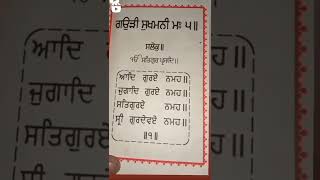 ਗਉੜੀ ਸੁਖਮਨੀ ਮਃ ੫॥
ਸਲੋਕੁ॥
ੴ ਸਤਿਗੁਰ ਪ੍ਰਸਾਦਿ॥
ਆਦਿ ਗੁਰਏ ਨਮਹ॥
ਜੁਗਾਦਿ ਗੁਰਏ ਨਮਹ॥
ਸਤਿਗੁਰਏ ਨਮਹ॥
ਸ੍ਰੀ ਗੁਰਦੇਵਏ ਨਮਹ॥
॥੧॥